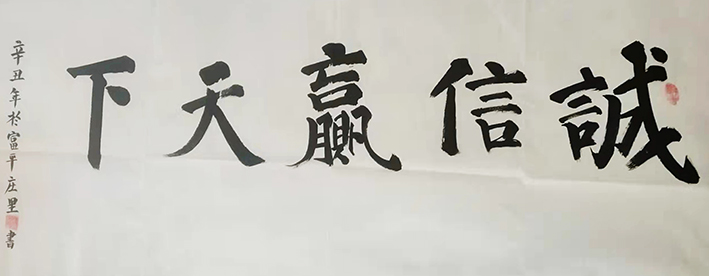 誠信贏天下
辛丑年於富平庄里書